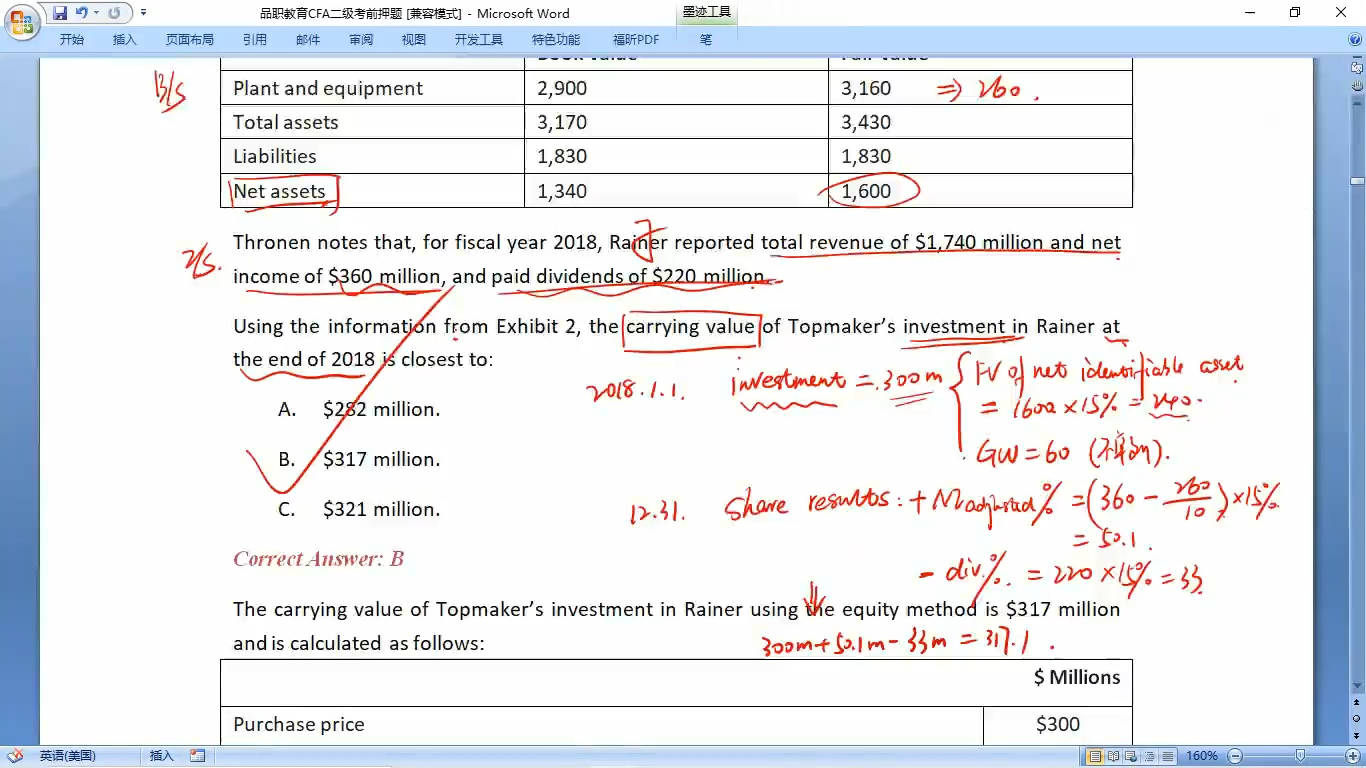 品职教育CFA二级考前押题 [兼容模式] - Microsoft Word
墨迹工具
开始 插入 页面布局 引用 邮件 审阅 视图 开发工具 特色功能 福昕PDF 笔
Book Value Fair Value
B/S
Plant and equipment 2,900 3,160 ⇒ 260.
Total assets 3,170 3,430
Liabilities 1,830 1,830
Net assets 1,340 1,600
Thronen notes that, for fiscal year 2018, Rainer reported total revenue of $1,740 million and net
I/S.
income of $360 million, and paid dividends of $220 million.
Using the information from Exhibit 2, the carrying value of Topmaker's investment in Rainer at
the end of 2018 is closest to:
2018.1.1. investment = 300m { FV of net identifiable asset
= 1600 × 15% = 240.
GW = 60
A. $282 million.
B. $317 million.
C. $321 million.
12.31. Share results: + NI adjusted % = (360 - 260/10) × 15%
= 50.1.
- div% = 220 × 15% = 33
Correct Answer: B
The carrying value of Topmaker's investment in Rainer using the equity method is $317 million
and is calculated as follows:
300m + 50.1m - 33m = 317.1.
$ Millions
Purchase price $300
英语(美国) 插入 160%